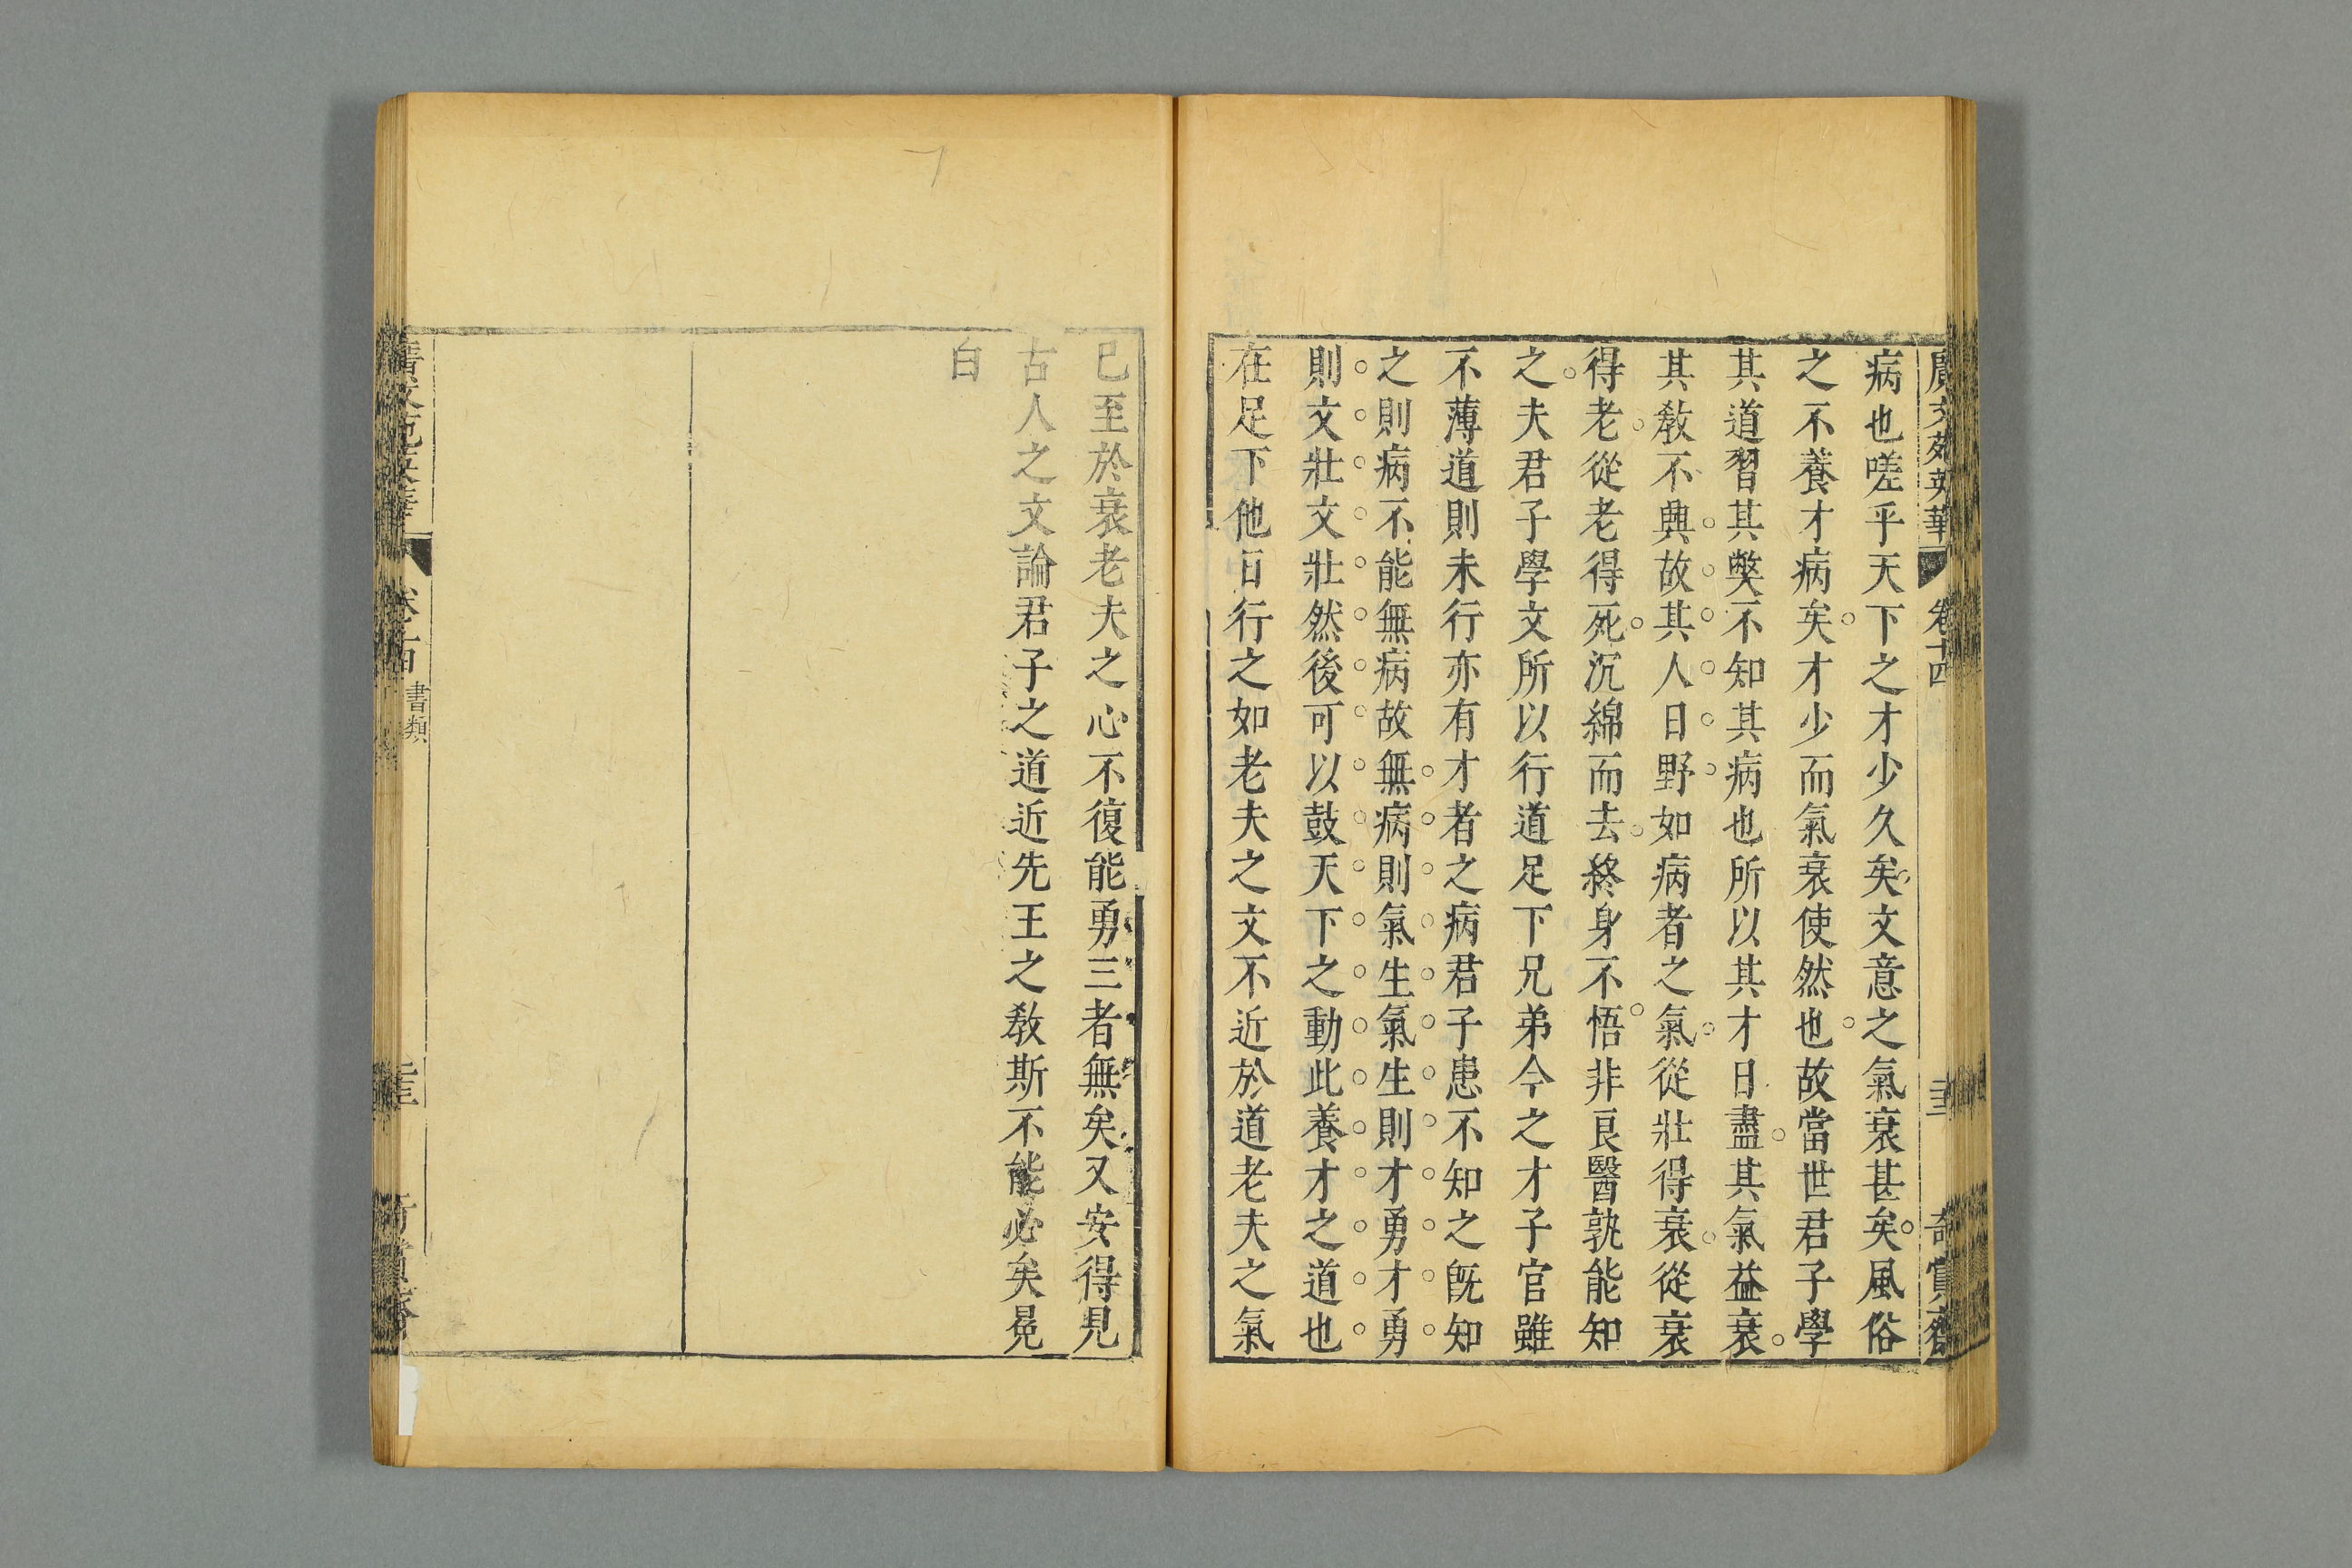 廣文苑英華 卷十四 奇賞齋
病也嗟乎天下之才少久矣文意之氣衰甚矣風俗
之不養才病矣才少而氣衰使然也故當世君子學
其道習其獘不知其病也所以其才日盡其氣益衰
其敎不興故其人日野如病者之氣從壯得衰從衰
得老從老得死沉綿而去終身不悟非良醫孰能知
之夫君子學文所以行道足下兄弟今之才子官雖
不薄道則未行亦有才者之病君子患不知之旣知
之則病不能無病故無病則氣生氣生則才勇才勇
則文壯文壯然後可以鼓天下之動此養才之道也
在足下他日行之如老夫之文不近於道老夫之氣
已至於衰老夫之心不復能勇三者無矣又安得見
古人之文論君子之道近先王之敎斯不能必矣冕
白
書類